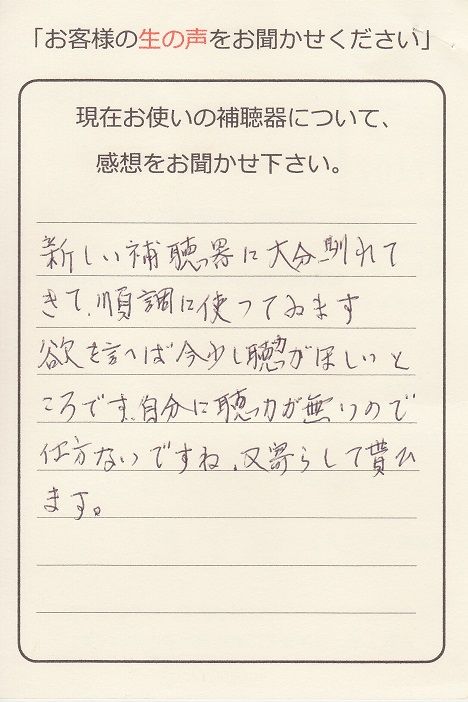 「お客様の生の声をお聞かせください」
現在お使いの補聴器について、
感想をお聞かせ下さい。
新しい補聴器に大分馴れて
きて、順調に使ってゐます
欲を言へば今少し聴力がほしいと
ころです、自分に聴力が無いので
仕方ないですね、又寄らして貰ひ
ます。